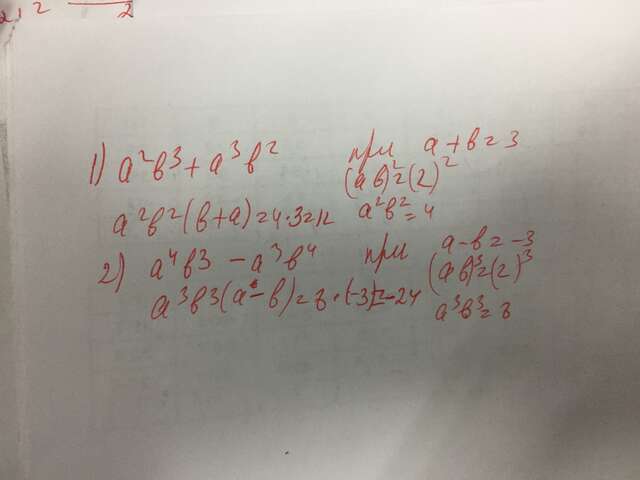 2
1) a²b³ + a³b² при a + b = 3
(ab)² = (2)²
a²b²(b+a) = 4·3 = 12 a²b² = 4
2) a⁴b³ - a³b⁴ при a - b = -3
(ab)³ = (2)³
a³b³(a - b) = 8 · (-3) = -24 a³b³ = 8